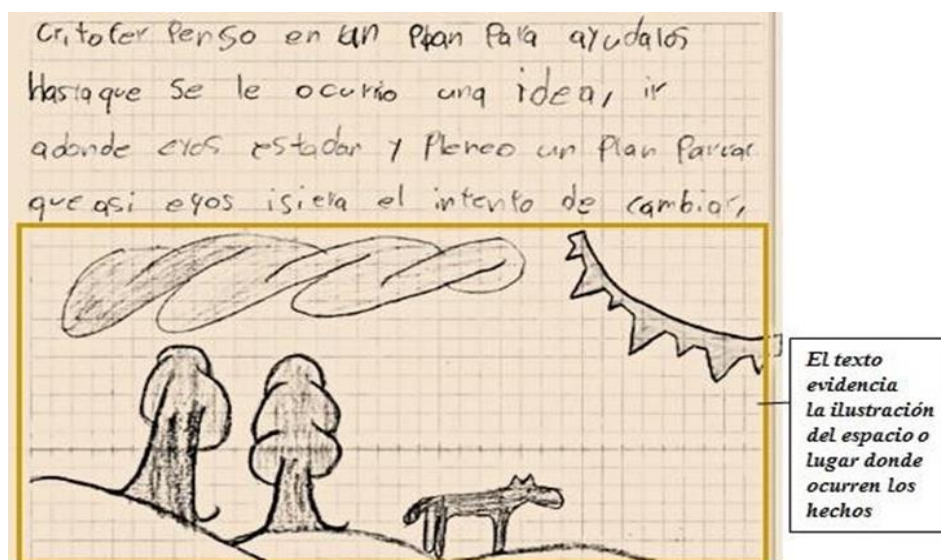 Critofer Penso en un Plan Para ayudalos
Hasta que se le ocurrio una idea, ir
adonde eyos estadan y Pleneo un Plan
que asi eyos isiera el intento de cambiar,
El texto
evidencia
la ilustración
del espacio o
lugar donde
ocurren los
hechos